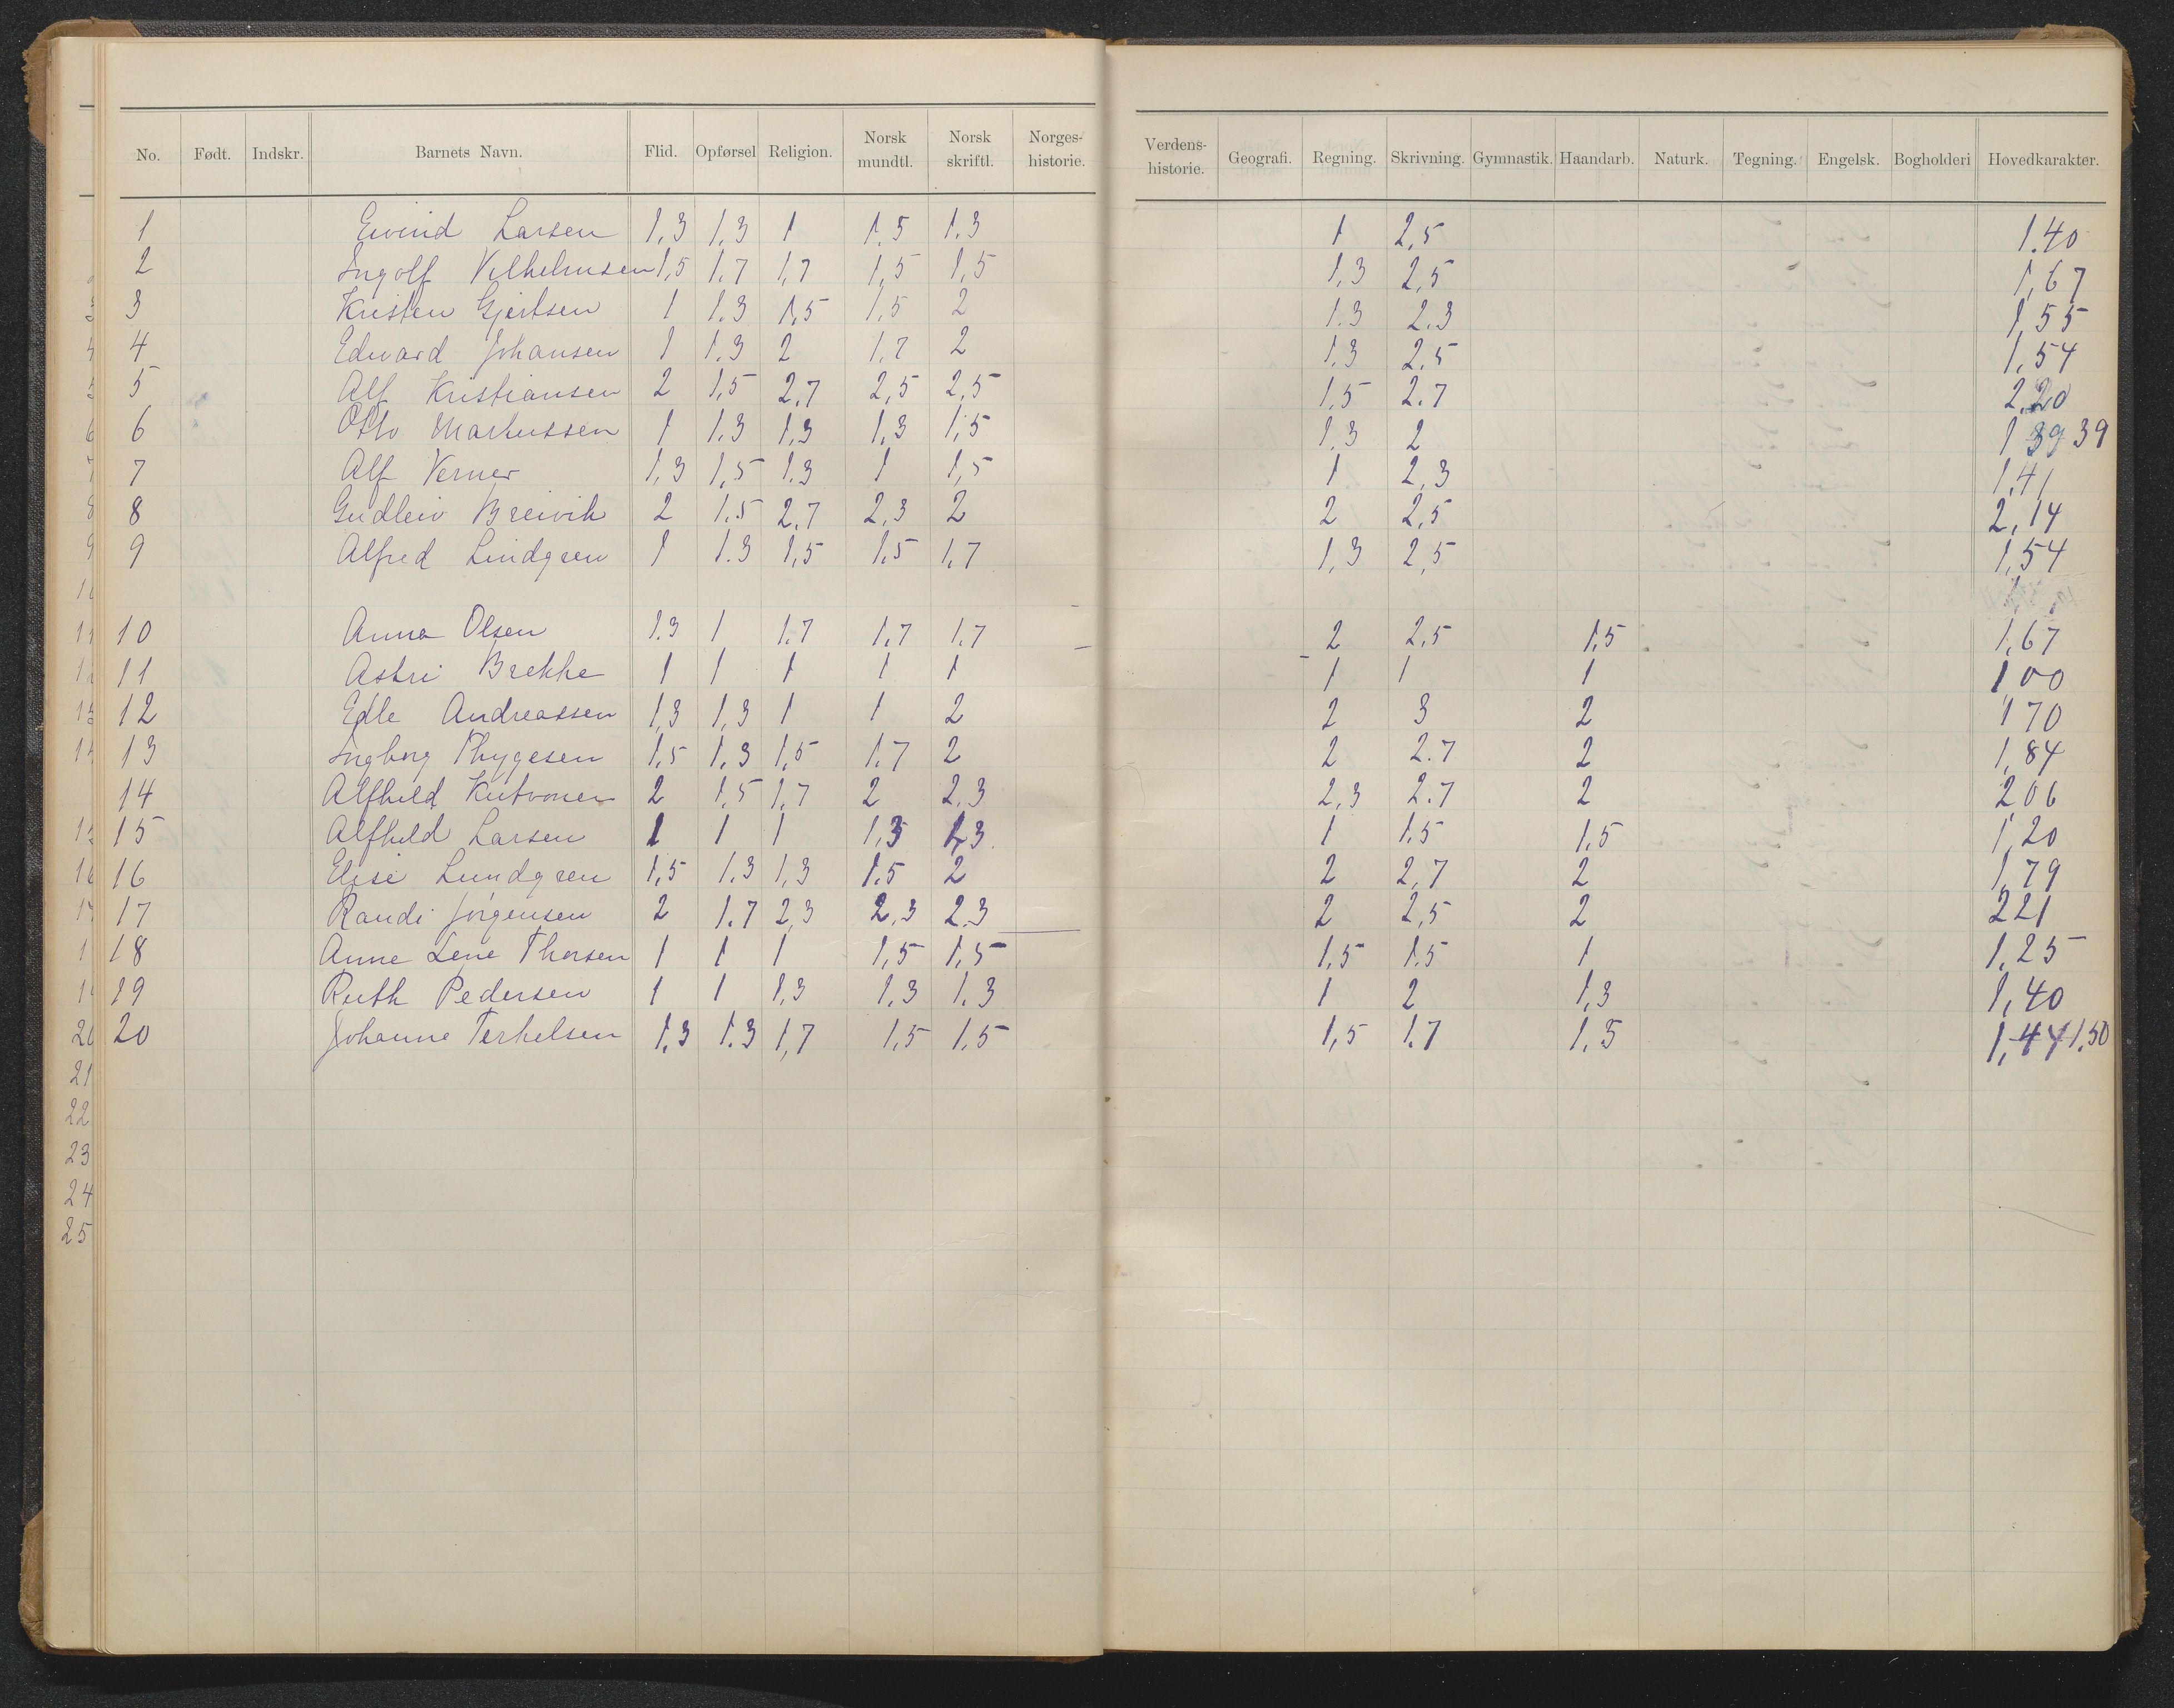 No. Født. Indskr. Barnets Navn. Flid. Opførsel Religion. Norsk mundtl. Norsk skriftl. Norges-historie. Verdens-historie. Geografi. Regning. Skrivning. Gymnastik. Haandarb. Naturk. Tegning. Engelsk. Bogholderi Hovedkarakter.
1 Eivind Larsen 1,3 1,3 1 1,5 1.3 1 2,5 1.40
2 Ingolf Vilhelmsen 1,5 1.7 1,7 1,5 1,5 1,3 2,5 1,67
3 Kristen Gjertsen 1 1.3 1,5 1,5 2 1.3 2.3 1,55
4 Edvard Johansen 1 1.3 2 1,7 2 1.3 2.5 1,54
5 Alf Kristiansen 2 1,5 2,7 2,5 2,5 1,5 2.7 2,20
6 Otto Markussen 1 1.3 1.3 1,3 1,5 1,3 2 1 39 39
7 Alf Verner 1,3 1,5 1.3 1 1,5 1 2,3 1,41
8 Gudleiv Breivik 2 1.5 2,7 2,3 2 2 2,5 2,14
9 Alfred Lindgren 1 1.3 1,5 1,5 1,7 1,3 2,5 1,54
10 Anna Olsen 1.3 1 1.7 1,7 1.7 2 2,5 1,5 1,67
11 Astri Brekke 1 1 1 1 1 1 1 1 1 00
12 Edle Andreassen 1,3 1,3 1 1 2 2 3 2 1 70
13 Ingborg Thygesen 1,5 1,3 1,5 1.7 2 2 2.7 2 1,84
14 Alfhild 2 1,5 1,7 2 2.3 2,3 2.7 2 2 06
15 Alfhild Larsen 1 1 1 1,3 1,3 1 1.5 1,5 1,20
16 Elise Lundgren 1,5 1.3 1,3 1.5 2 2 2,7 2 1,79
17 Randi Jørgensen 2 1.7 2,3 2,3 2.3 2 2,5 2 2 21
18 Anne Lene Thorsen 1 1 1 1,5 1,5 1,5 1.5 1 1,25
19 Ruth Pedersen 1 1 1,3 1.3 1.3 1 2 1,3 1,40
20 Johanne Terkelsen 1,3 1.3 1,7 1,5 1.5 1,5 1.7 1,5 1,44 1,50
21
22
23
24
25